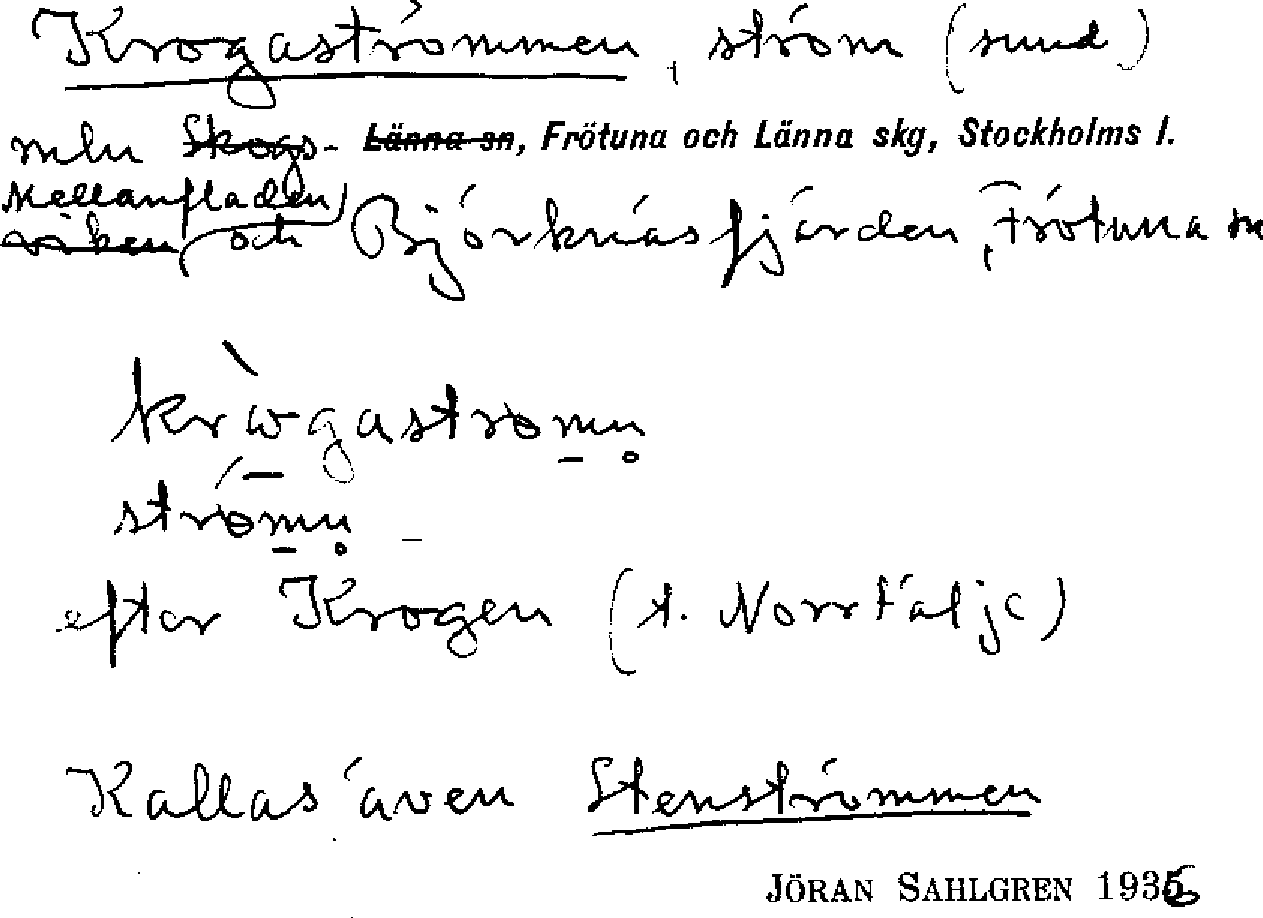 Krogaströmmen, ström (sund)
mln Skogs- Länna sn, Frötuna och Länna skg, Stockholms l.
Mellanfladen
viken och Björknäsfjärden, Frötuna sn
krὼgastrømn̥
strømn̥
efter Krogen (t. Norrtälje)
Kallas även Stenströmmen
JÖRAN SAHLGREN 1936